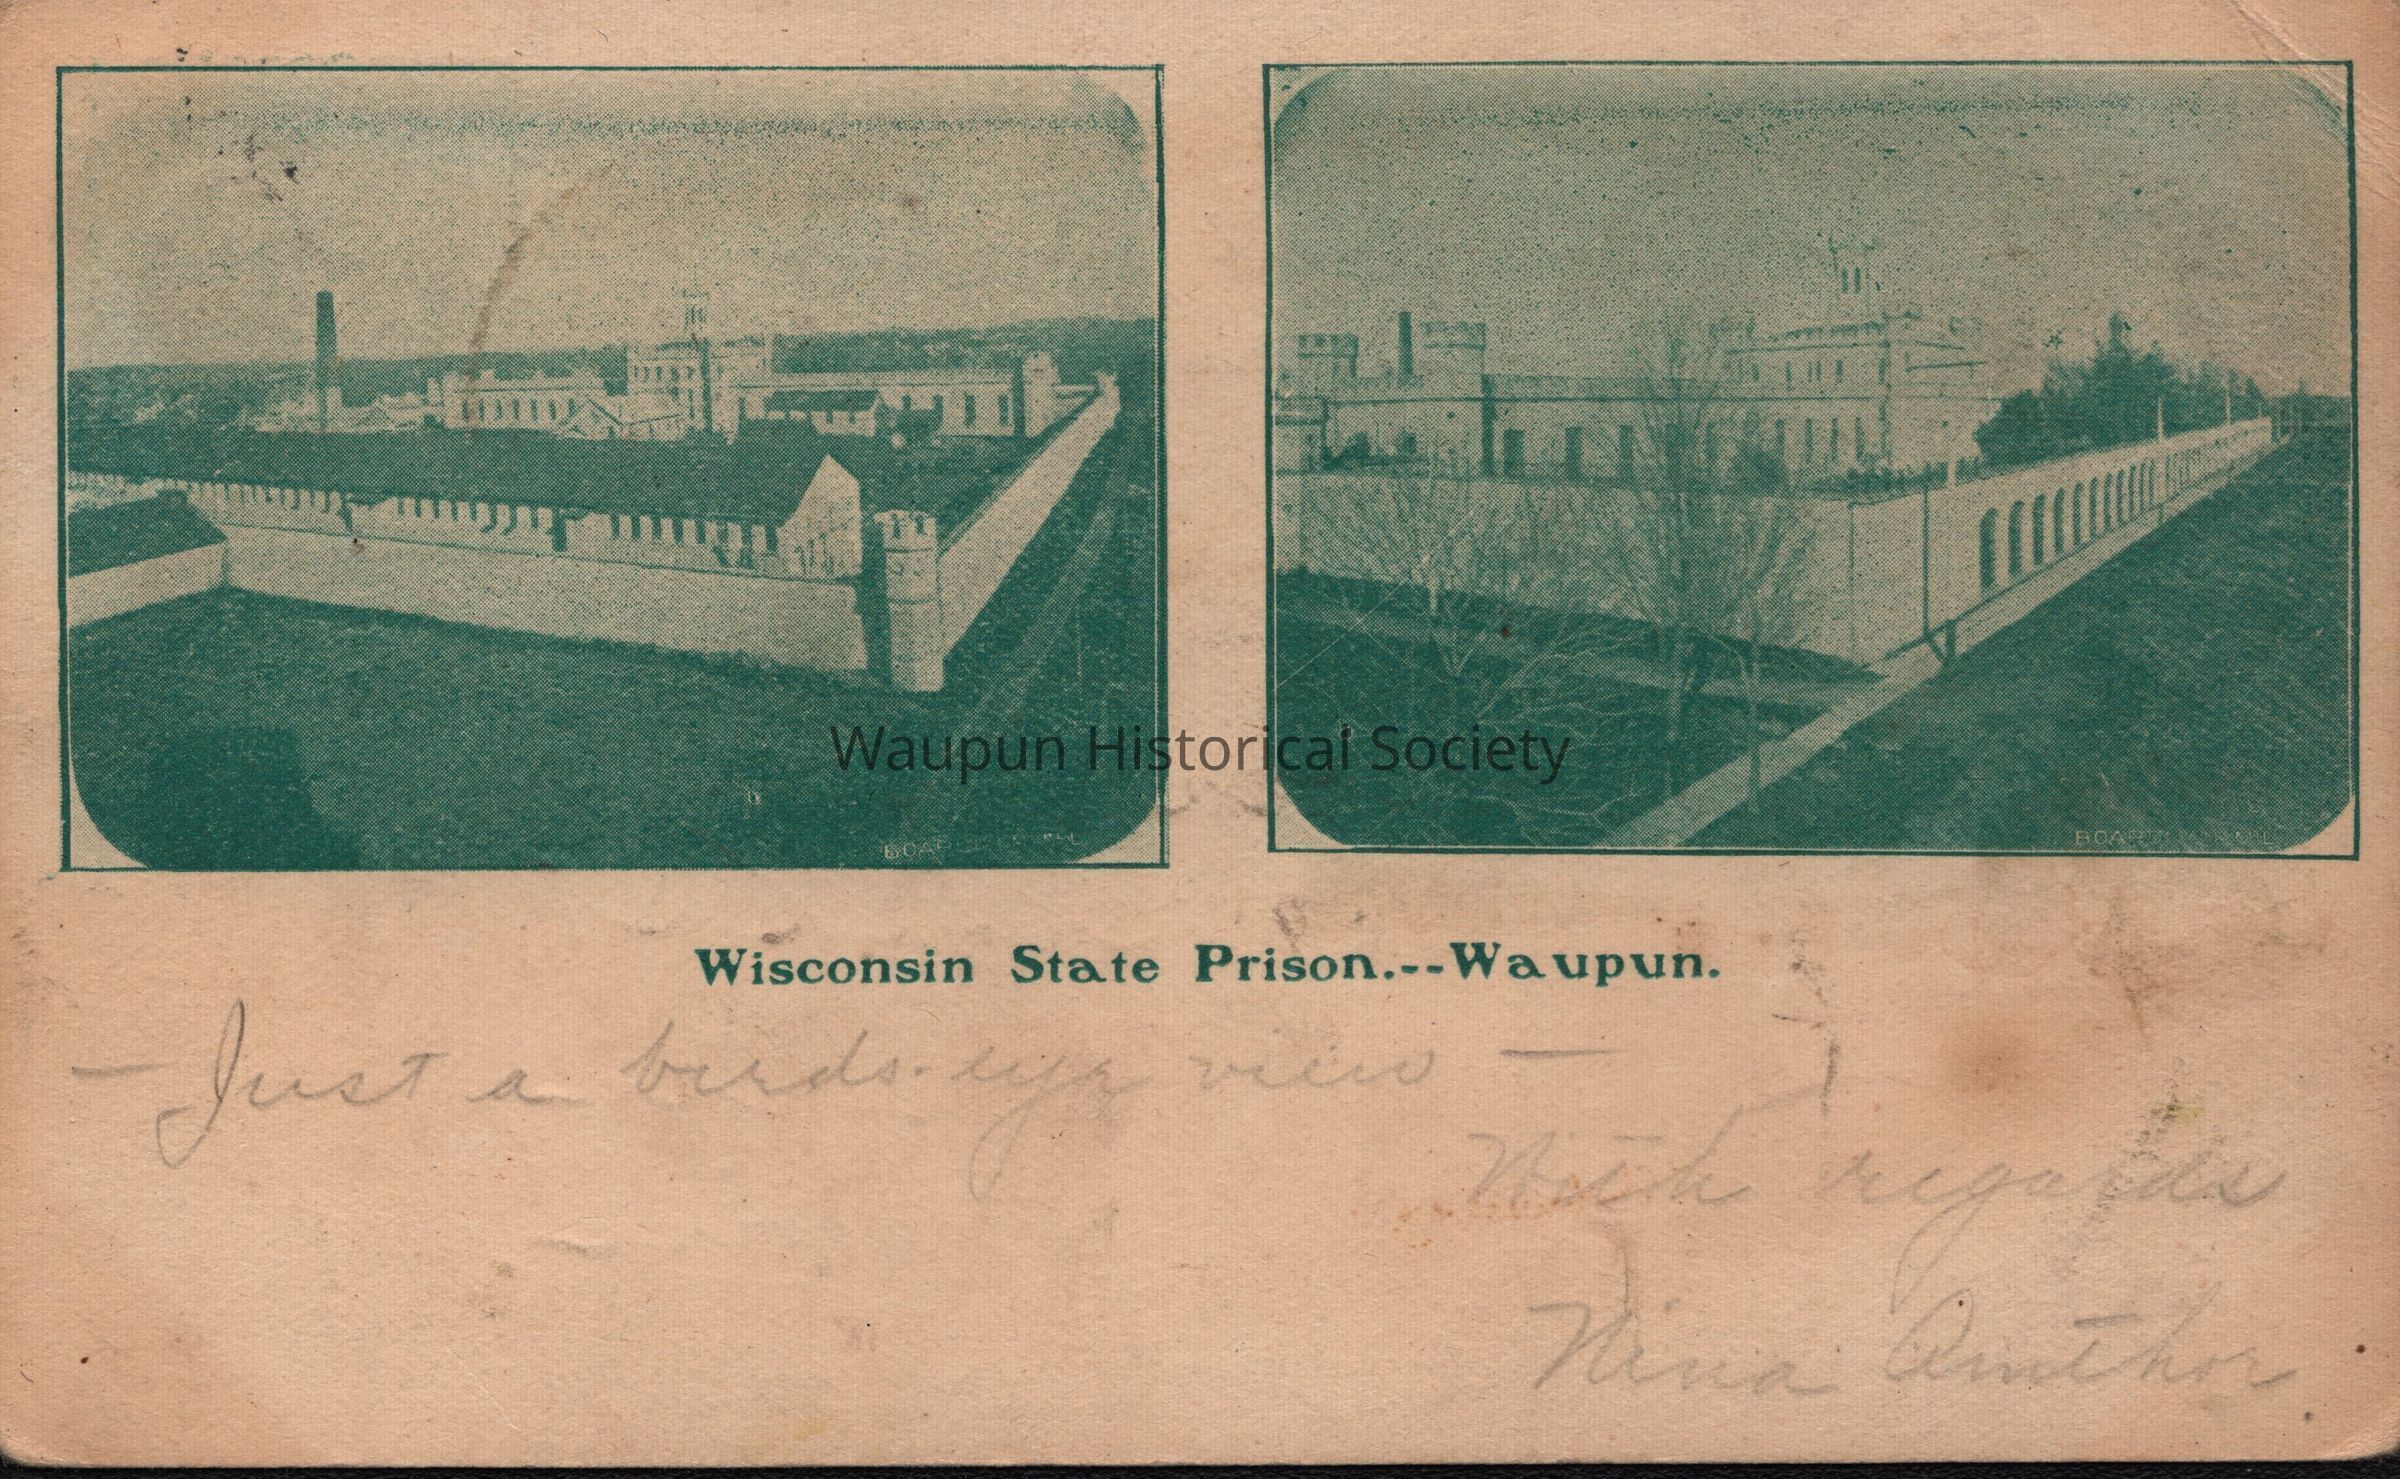 Waupun Historical Society
Wisconsin State Prison.--Waupun.
— Just a birds-eye view —
With regards
Nina Amthor